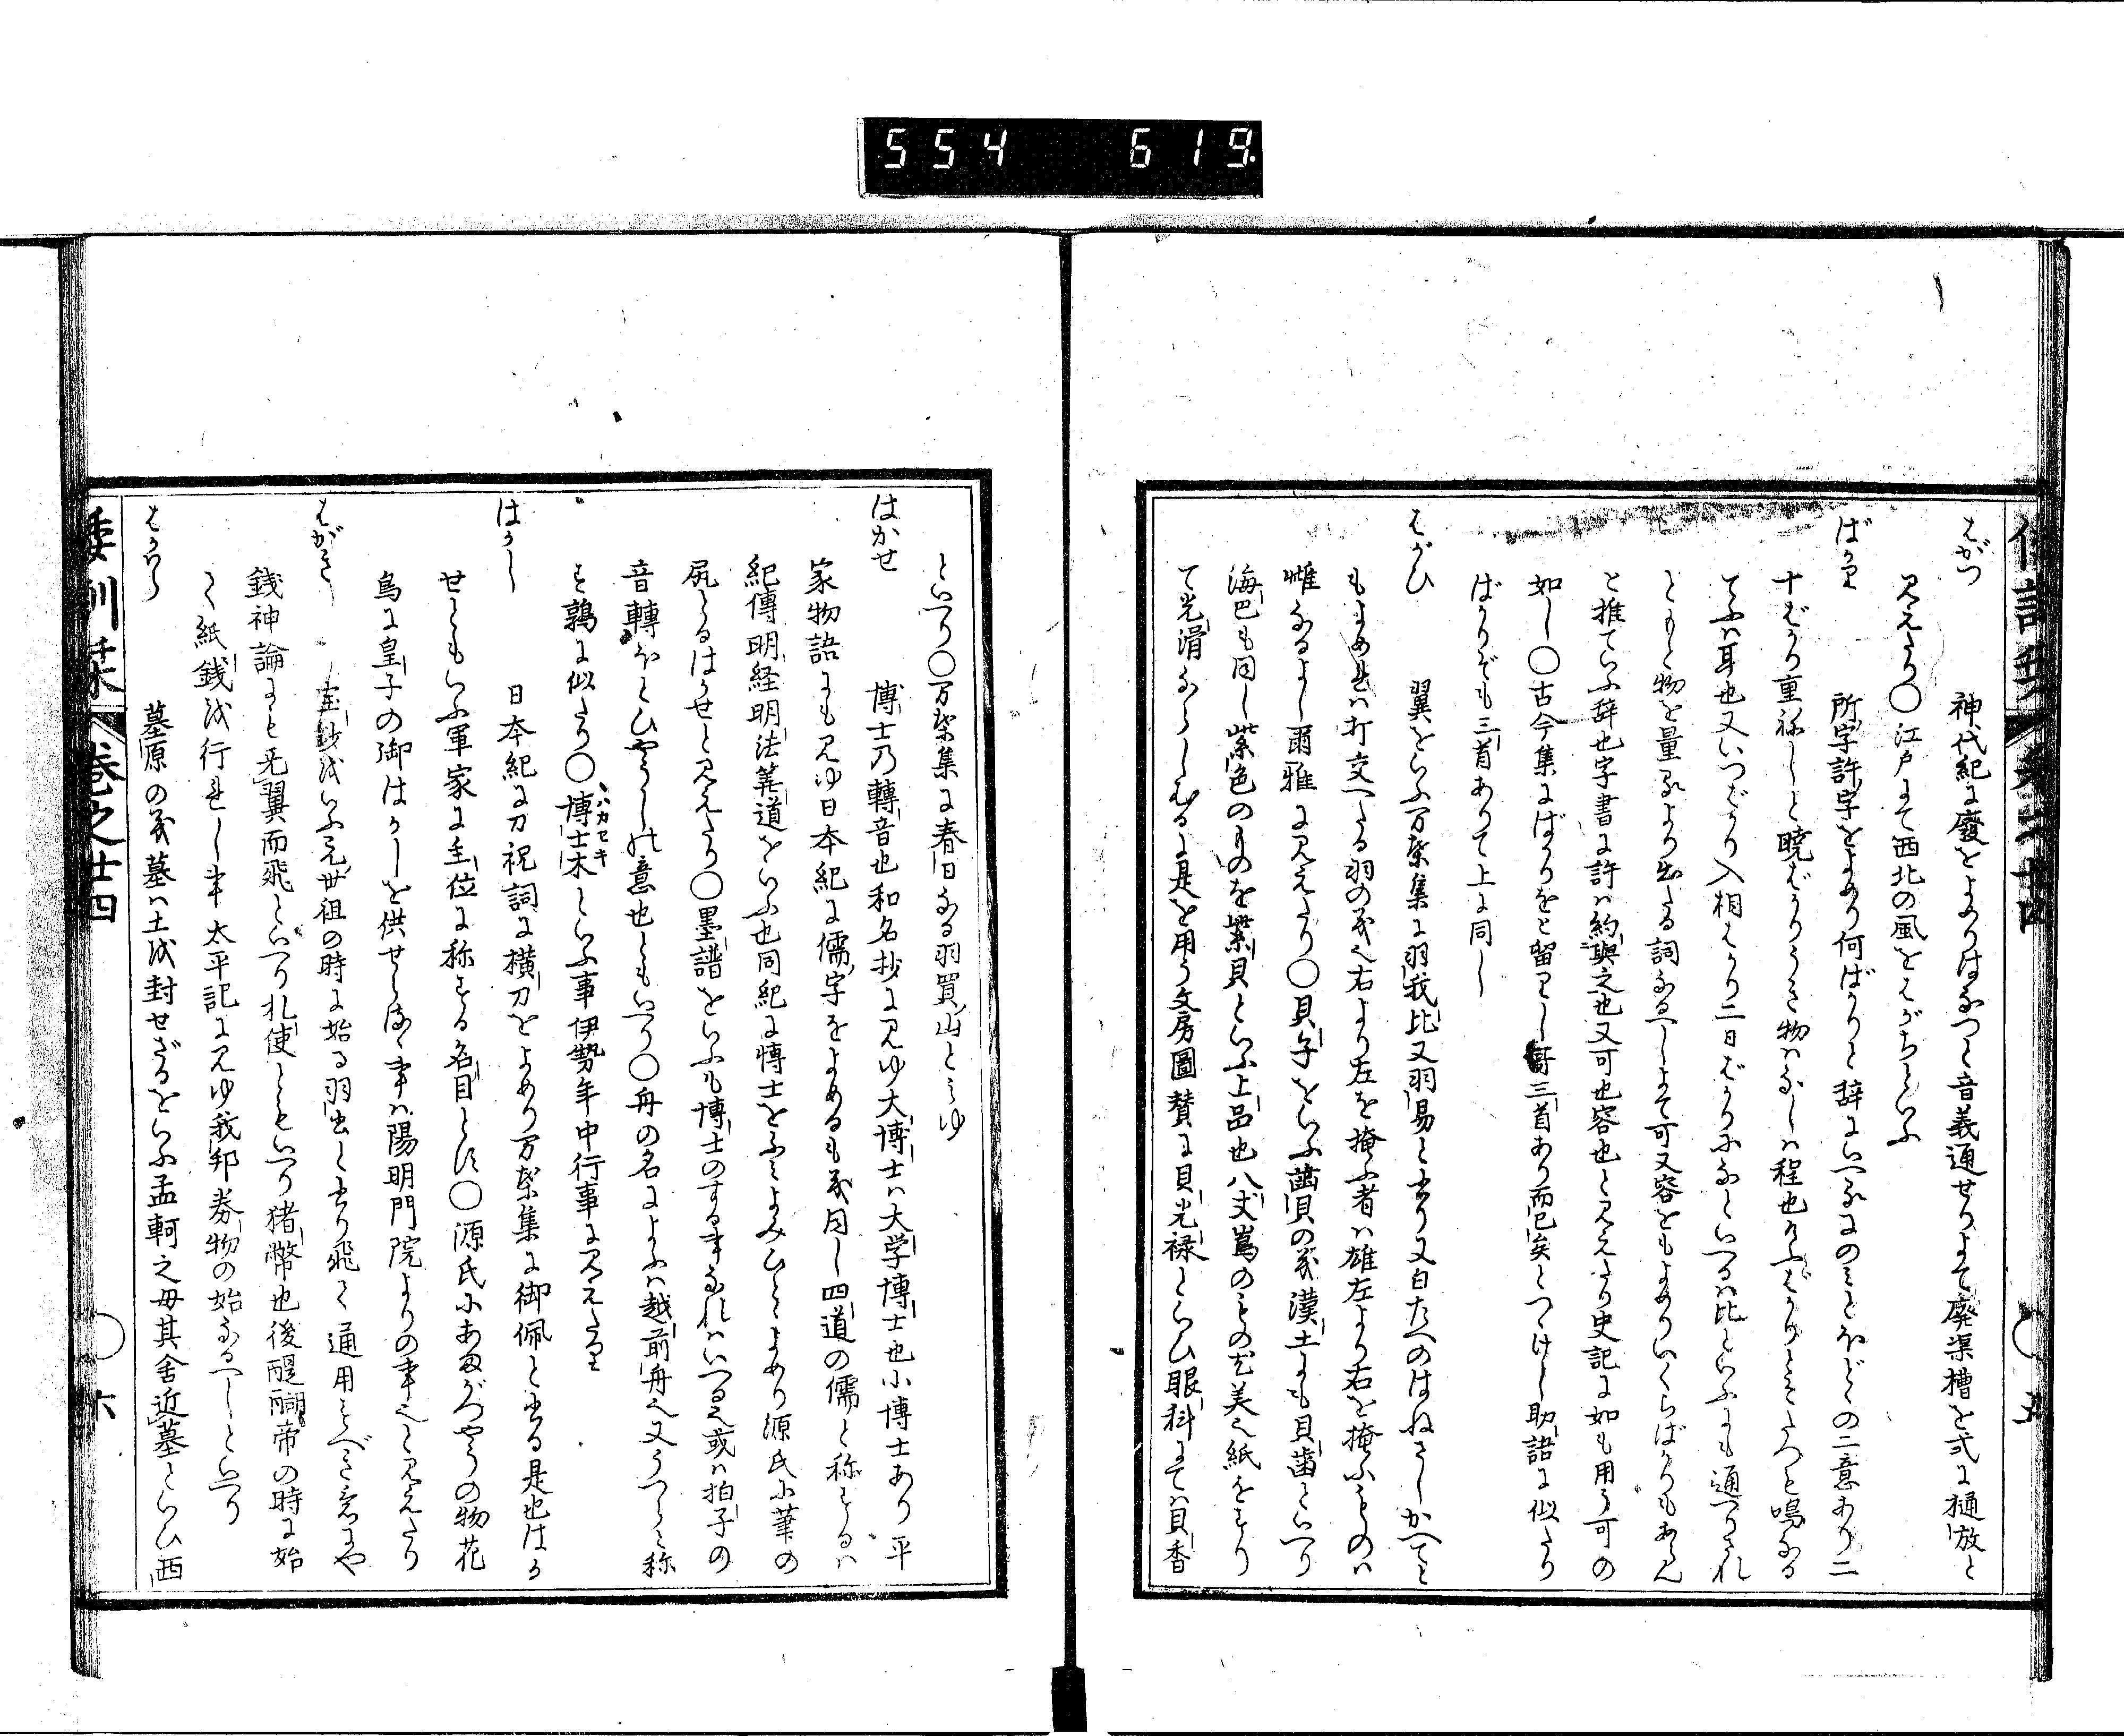 554 619
はがつ 神代紀に廢をよめりはなつと音義通せりよて廃渠槽を式に樋放と
見えたり〇江戸にて西北の風をはがちといふ
ばかり 所字許字をよめり何ばかりと辞にいへるはのみとほどゝの二意あり二
十ばかり重ねしと暁ばかりうき物はなしは程也けふばかりとそたつと鳴なる
てふは耳也又いつばかり入相はかり二日ばかりになといへるは比といふにも通へりされ
ともと物を量るより出たる詞なるへしよて可又容をもよめりいくらばかりもあらん
と推ていふ辞也字書に許は約與之也又可也容也と見えたり史記に如も用う可の
如し〇古今集にばかりをと留りし哥三首あり而已矣とつけし助語に似たり
ばかりぞも三首ありて上に同し
はがひ 翼をいふ万葉集に羽我比又羽易と書り又白たへのはねさしかへて
もよめれは打交へたる羽の義也右より左を掩ふ者は雄左より右を掩ふものは
雌なるよし爾雅に見えたり〇貝子をいふ歯貝の義漢土にも貝歯といへり
海巴も同し紫色のものを紫貝といふ上品也八丈嶌のもの尤美也紙をすり
て光滑ならしむるに是を用う文房圖賛に貝光禄といひ眼科にては貝香
といへり〇万葉集に春日なる羽買山とみゆ
はかせ 博士乃轉音也和名抄に見ゆ大博士は大学博士也小博士あり平
家物語にも見ゆ日本紀に儒字をよめるも義同し四道の儒と称するは
紀傳明経明法筭道をいふ也同紀に博士をふみよみひとゝよめり源氏に筆の
尻とるはかせと見えたり〇墨譜をいふも博士のする事なれはいへる也或は拍子の
音轉ほとひやうしの意也ともいへり〇舟の名によふは越前舟也又うつらを称
す鶉に似たり〇博士木といふ事伊勢年中行事に見えたり
ハカセキ
はかし 日本紀に刀祝詞に横刀をよめり万葉集に御佩と書る是也はか
せともいふ軍家に主位に称する名目とす〇源氏にあまがつやうの物花
鳥に皇子の御はかしを供せらるゝ事は陽明門院よりの事也と見えたり
はがき 宝鈔をいふ元世祖の時に始る羽書と書り飛て通用すべき意にや
銭神論にも无翼而飛といへり札使ともいへり猪幣也後醍醐帝の時に始
て紙銭を行れし事太平記に見ゆ我邦券物の始なるへしといへり
はかはら 墓原の義墓は土を封せざるをいふ孟軻之母其舎近墓といひ西
倭訓栞 巻之廿四 〇六